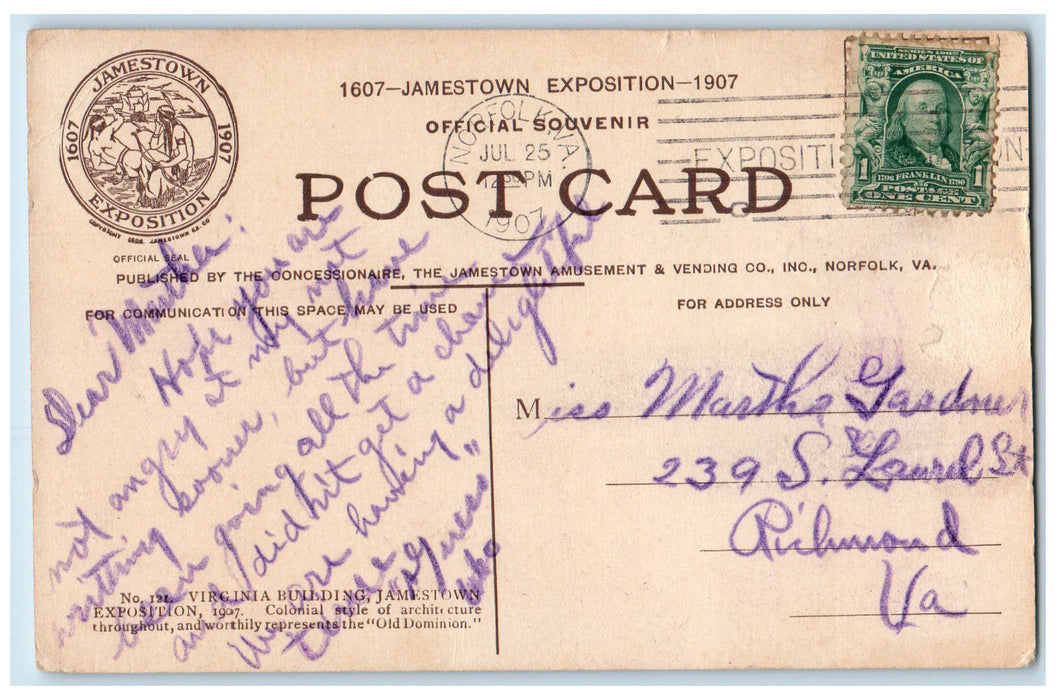 JAMESTOWN
1607 1907
EXPOSITION
COPYRIGHT 1906 JAMESTOWN EX. CO.
OFFICIAL SEAL
1607—JAMESTOWN EXPOSITION—1907
OFFICIAL SOUVENIR
POST CARD
NORFOLK, VA.
JUL 25
PM
1907
EXPOSITI
N
SERIES 1902
UNITED STATES OF
AMERICA
1 1
1706 FRANKLIN 1790
POSTAGE
ONE CENT
PUBLISHED BY THE CONCESSIONAIRE, THE JAMESTOWN AMUSEMENT & VENDING CO., INC., NORFOLK, VA.
FOR COMMUNICATION THIS SPACE MAY BE USED
FOR ADDRESS ONLY
Dear Martha:
Hope you are
not angry at my not
writting sooner, but have
been going all the time
and didn't get a chance
We are having a delightful
time
Miss Martha Gardner
239 S. Laurel St
Richmond
Va
No. 121. VIRGINIA BUILDING, JAMESTOWN
EXPOSITION, 1907. Colonial style of architecture
throughout, and worthily represents the "Old Dominion."